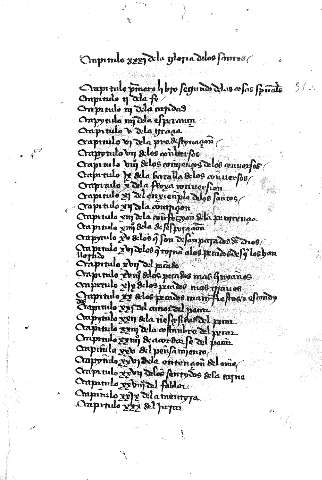 Capitulo xxxi de la gloria de los santos
Capitulo primero libro segundo de las cosas spirituales
Capitulo ii de la fe
Capitulo iii de la caridad
Capitulo iiii de la esperança
Capitulo v de la graçia
Capitulo vi de la predestynaçion
Capitulo vii de los conversos
Capitulo viii de los comienços de los conversos
Capitulo ix de la batalla de los conversos
Capitulo x de la conversion
Capitulo xi del enxenplo de los santos
Capitulo xii de la
Capitulo xiii de la confesyon de la penitençia
Capitulo xiiii de la desesperaçion
Capitulo xv de los que son desanparados de dios
Capitulo xvi de los que torna a los pecados que los han
llorado
Capitulo xvii del pecado
Capitulo xviii de los pecados mas livianos
Capitulo xix de los pecados mas graves
Capitulo xx de los pecados manifiestos
Capitulo xxi del amor del pecar
Capitulo xxii de la nesçesidad del pecar
Capitulo xxiii de la costunbre del pecar
Capitulo xxiiii de acordarse del pecar
Capitulo xxv del pensamiento
Capitulo xxvi de la
Capitulo xxvii de los sentydos de la carne
Capitulo xxviii del fablar
Capitulo xxix de la mentyra
Capitulo xxx del jurar